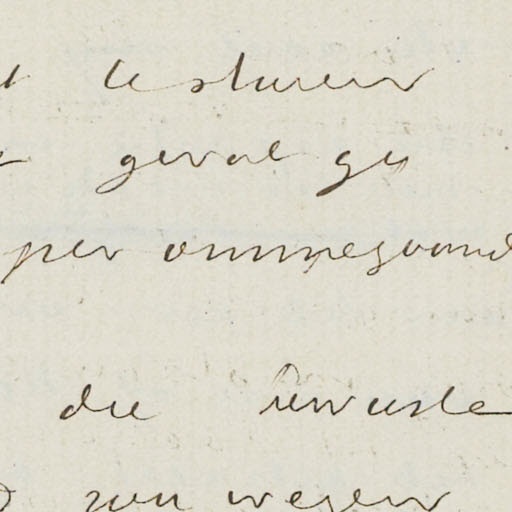 te sturen
geval gy
per ommegaand
die bewuste
zou wezen